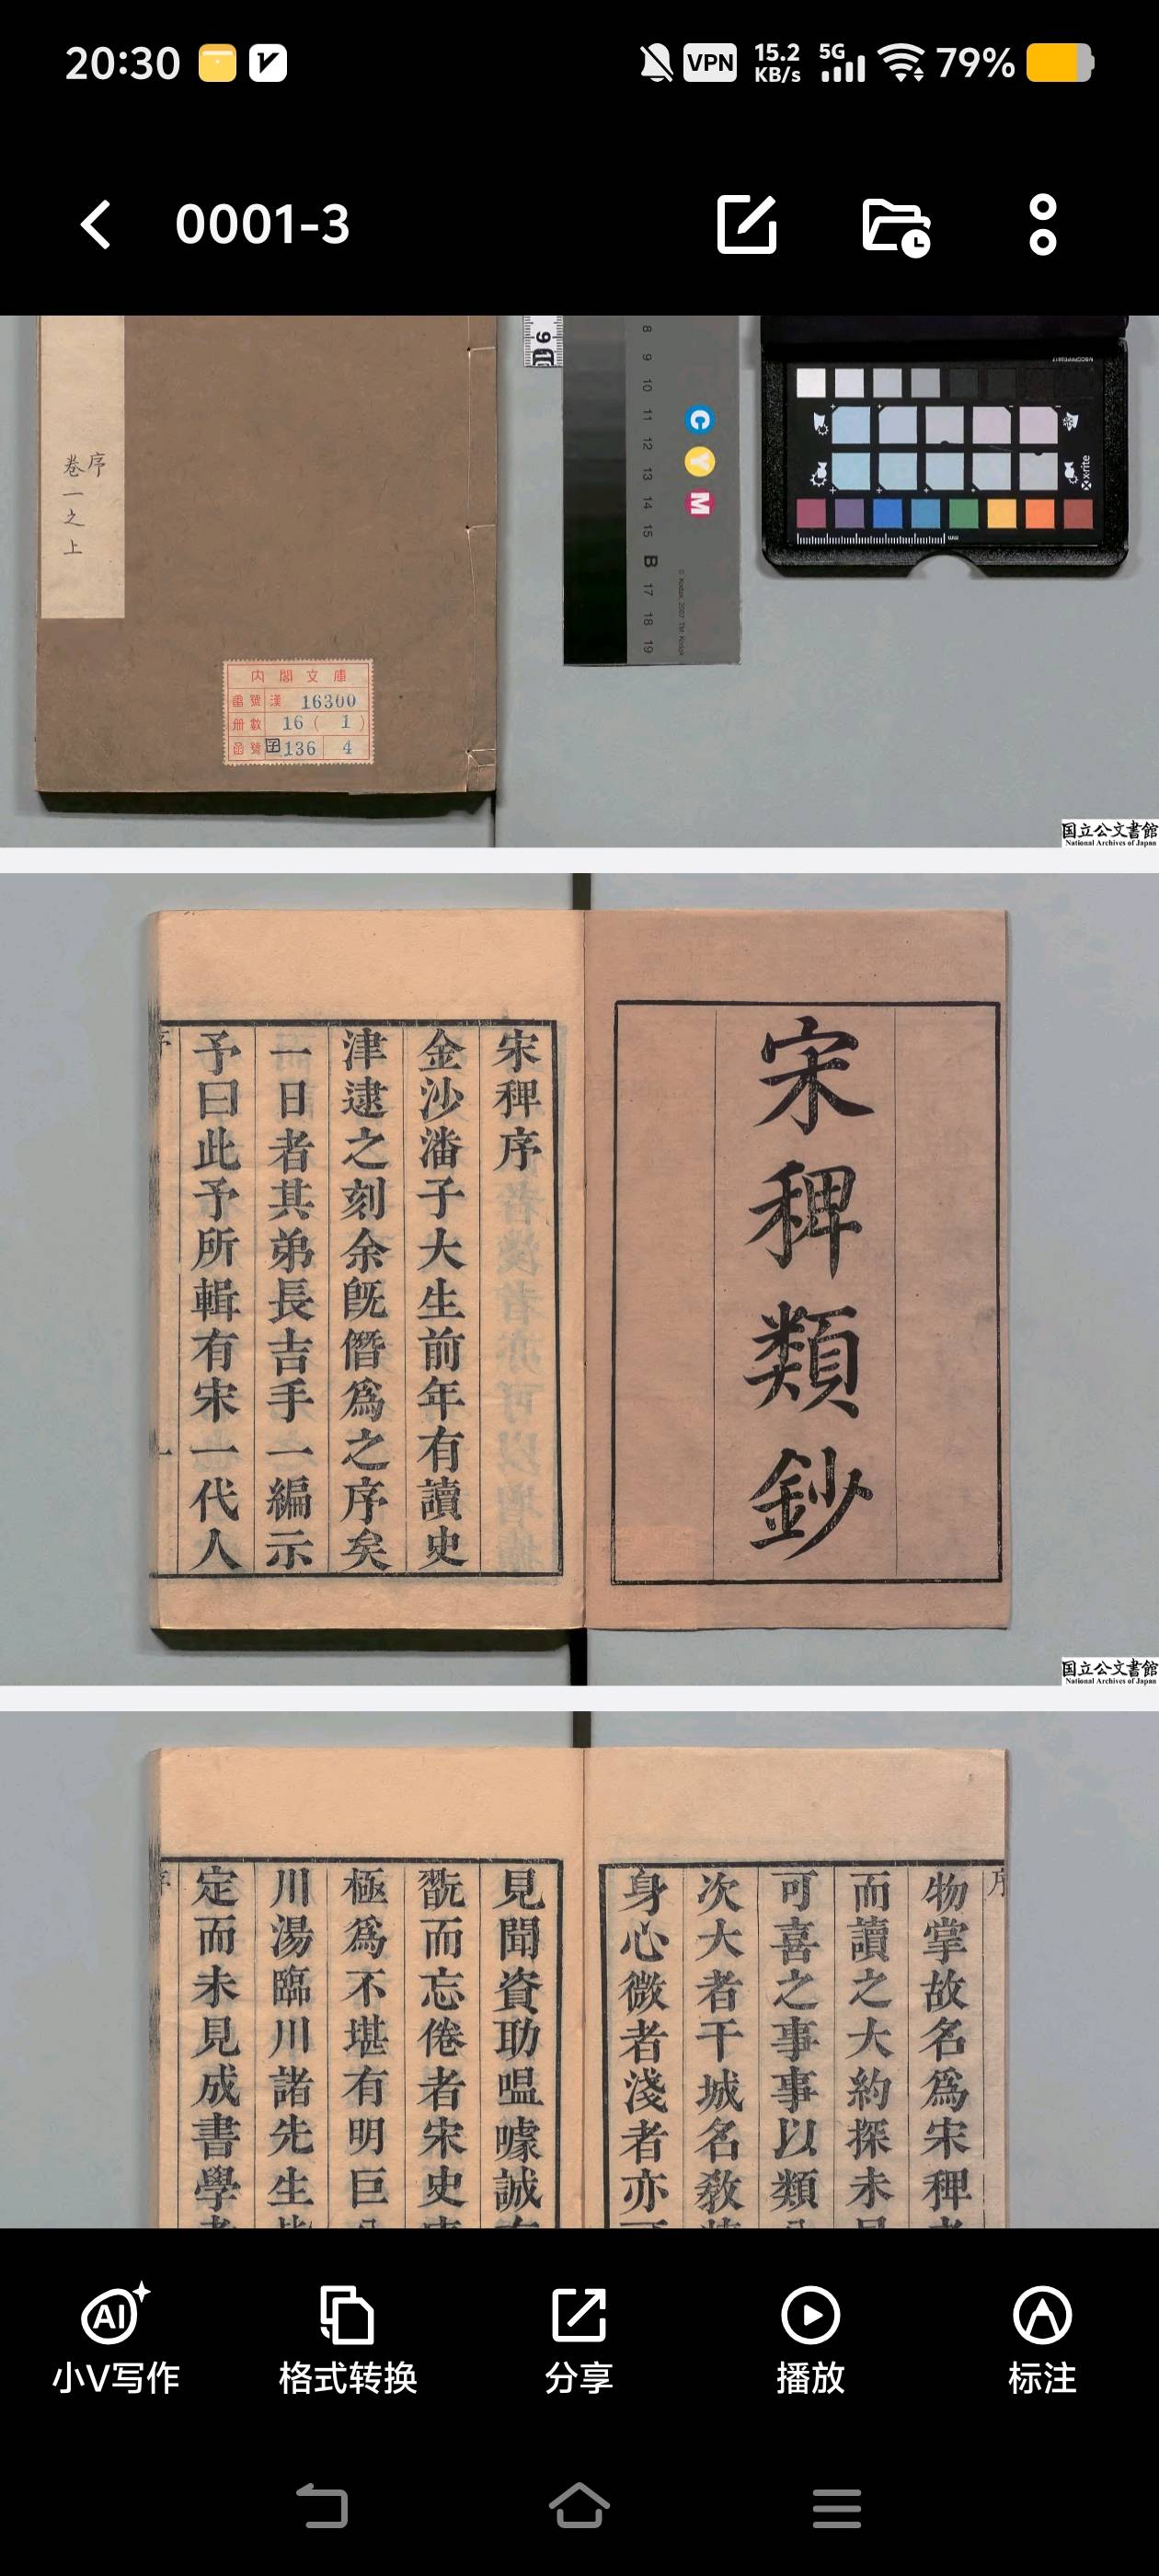 20:30
VPN
15.2 KB/s
5G
79%
0001-3
序
卷一之上
内閣文庫
番號 漢 16300
冊數 16 ( 1 )
函號 子136 4
8
9
10
11
12
13
14
15
B
17
18
19
C
Y
M
© Kodak, 2007 TM: Kodak
x-rite
mm
国立公文書館
National Archives of Japan
宋稗類鈔
宋稗序
金沙潘子大生前年有讀史
津逮之刻余旣僭爲之序矣
一日者其弟長吉手一編示
予曰此予所輯有宋一代人
序
一
国立公文書館
National Archives of Japan
序
物掌故名爲宋稗
而讀之大約探未
可喜之事事以類
次大者干城名敎
身心微者淺者亦
見聞資助嗢噱誠
翫而忘倦者宋史
極爲不堪有明巨
川湯臨川諸先生
定而未見成書學
序
小V写作
格式转换
分享
播放
标注